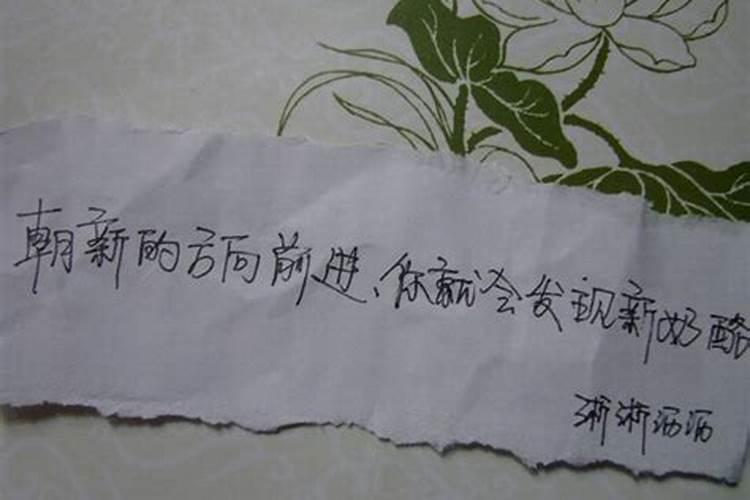 朝新的方向前进、你就会发现新奶酪
淅淅沥沥